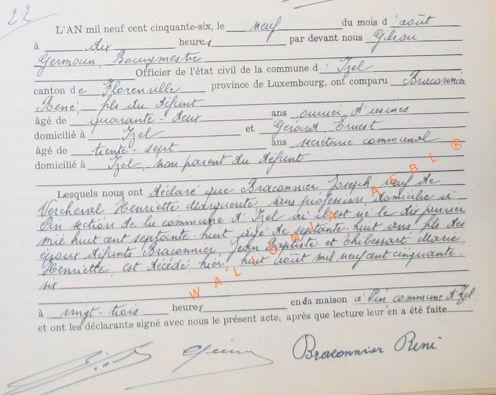 22
L'AN mil neuf cent cinquante-six, le neuf du mois d'août
à dix heures par devant nous Gilson
Germain, Bourgmestre
Officier de l'état civil de la commune d'Izel
canton de Florenville province de Luxembourg, ont comparu Braconnier
René, fils du défunt
âgé de quarante-deux ans ouvrier d'usines
domicilié à Izel et Gérard, Ernest
âgé de trente-sept ans secrétaire communal
domicilié à Izel, non parent du défunt
Lesquels nous ont déclaré que Braconnier, Joseph, veuf de
Vercheval Henriette Marguerite sans profession, domicilié à
Pin section de la commune d'Izel où il est né le dix janvier
mil huit cent septante-huit, âgé de septante-huit ans, fils des
époux défunts Braconnier, Jean Baptiste et Thibessart Marie
Henriette, est décédé hier huit août mil neuf cent cinquante-
six
à vingt-trois heures en da maison à Pin, commune d'Izel
et ont les déclarants signé avec nous le présent acte, après que lecture leur en a été faite
Braconnier René
WALLONIA ASBL ®